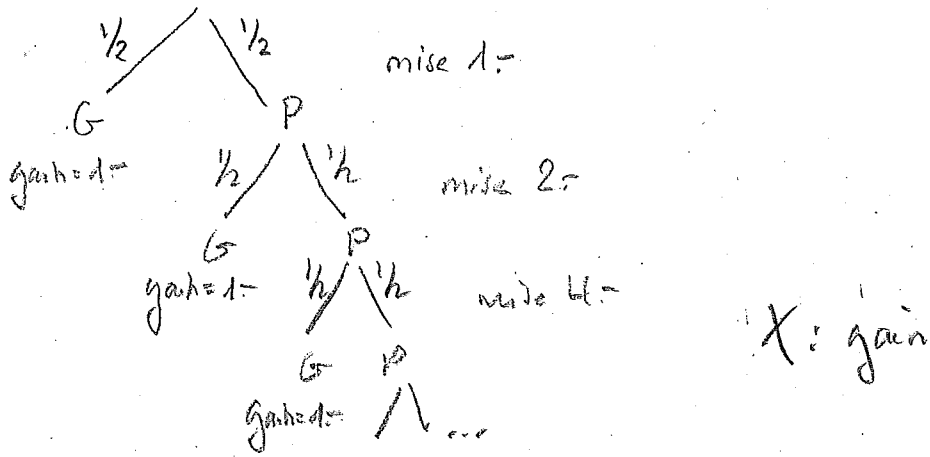 1/2 1/2 mise 1.-
G P
gain=1.- 1/2 1/2 mise 2.-
G P
gain=1.- 1/2 1/2 mise 4.-
X: gain
G P
gain=1.- ...